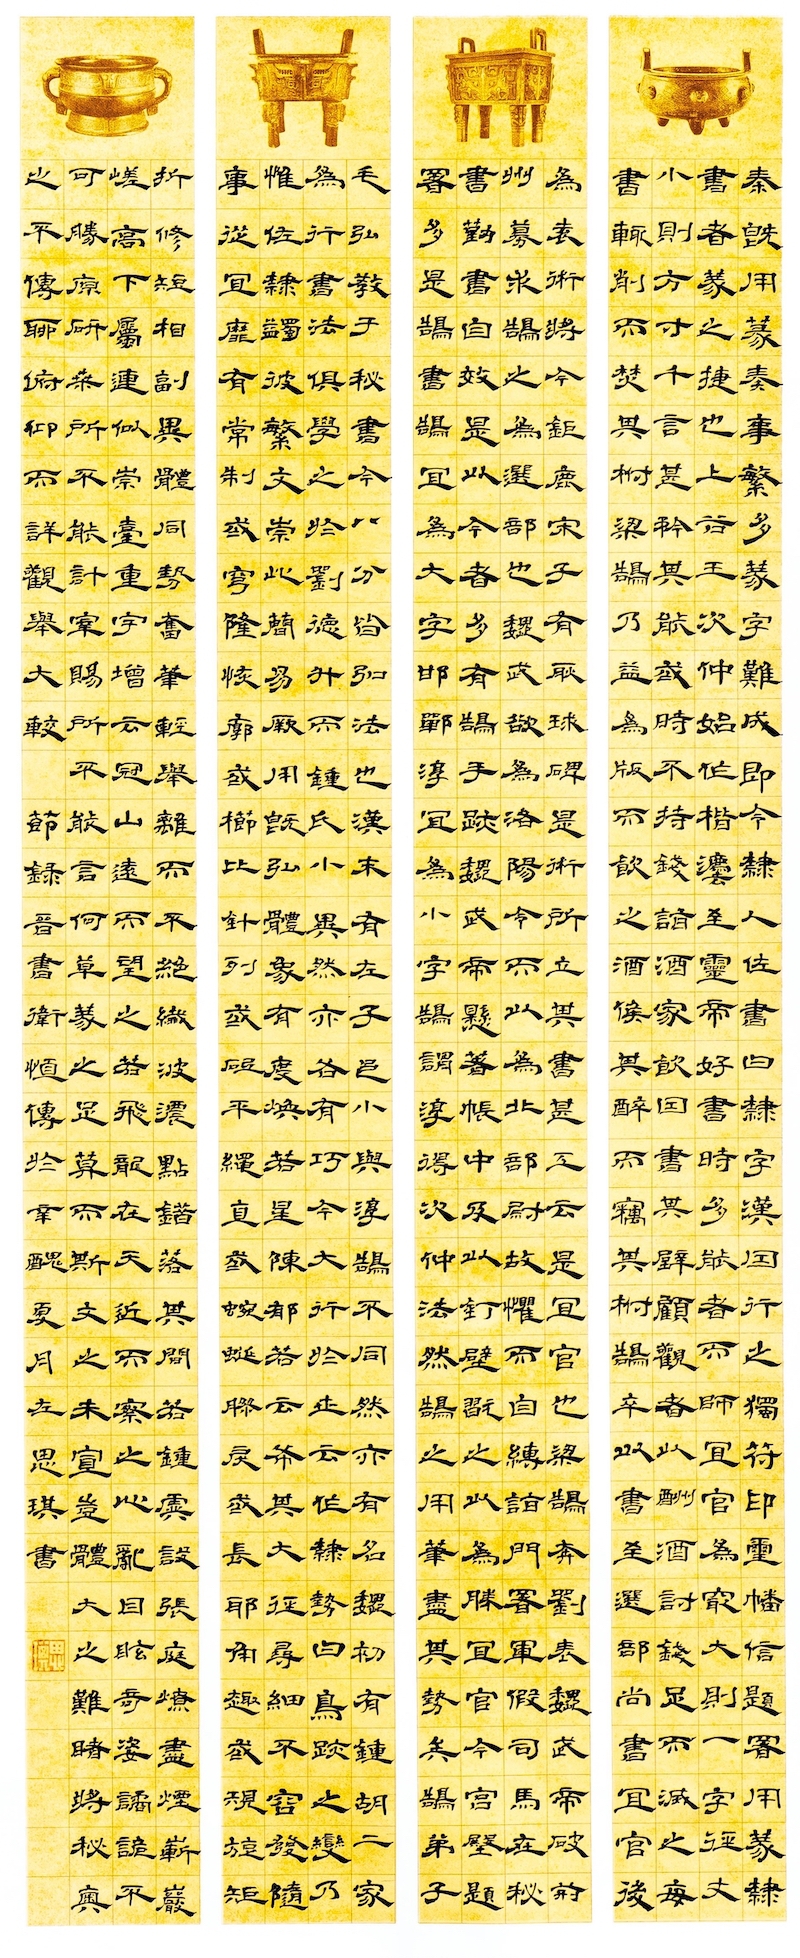 秦既用篆奏事繁多篆字難成即令隸人佐書曰隸字漢因行之獨符印璽幡信題署用篆隸
書者篆之捷也上谷王次仲始作楷灋至靈帝好書時多能者而師宜官為最大則一字徑丈
小則方寸千言甚矜其能或時不持錢詣酒家飲因書其壁顧觀者以酬酒討錢足而滅之每
書輒削而焚其柎梁鵠乃益為版而飲之酒候其醉而竊其柎鵠卒以書至選部尚書宜官後
為袁術將今鉅鹿宋子有耿球碑是術所立其書甚工云是宜官也梁鵠奔劉表魏武帝破荊
州募求鵠之為選部也魏武欲為洛陽令而以為北部尉故懼而自縛詣門署軍假司馬在秘
書勤書自效是以今者多有鵠手跡魏武帝懸著帳中及以釘壁翫之以為勝宜官今宮壂題
署多是鵠書鵠宜為大字邯鄲淳宜為小字鵠謂淳得次仲法然鵠之用筆盡其勢矣鵠弟子
毛弘教于秘書今八分皆弘法也漢末有左子邑小與淳鵠不同然亦有名魏初有鍾胡二家
為行書法俱學之於劉德升而鍾氏小異然亦各有巧今大行於世云作隸勢曰鳥跡之變乃
惟佐隸蠲彼繁文崇此簡易厥用既弘體象有度煥若星陳郁若云布其大徑尋細不容發隨
事從宜靡有常制或穹隆恢廓或櫛比針列或砥平繩直或蜿蜒膠戾或長邪角趣或規旋矩
折修短相副異體同勢奮筆輕舉離而不絕纖波濃點錯落其間若鍾虡設張庭燎盡煙嶄巖
嵯高下屬連似崇臺重宇增云冠山遠而望之若飛龍在天近而察之心亂目眩奇姿譎詭不
可勝原研桑所不能計宰賜所不能言何草篆之足算而斯文之未宣豈體大之難睹將秘奧
之不傳聊俯仰而詳觀舉大較 節錄晉書衛恒傳於辛醜夏月左思琪書